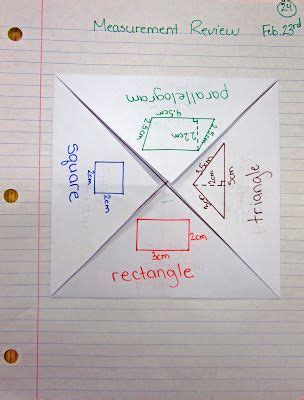 24
Measurement Review Feb. 23rd
parallelogram
4.5cm
2.5cm
2.2cm
2.5cm
square
2cm
2cm
triangle
3.5cm
2cm
5cm
rectangle
2cm
3cm